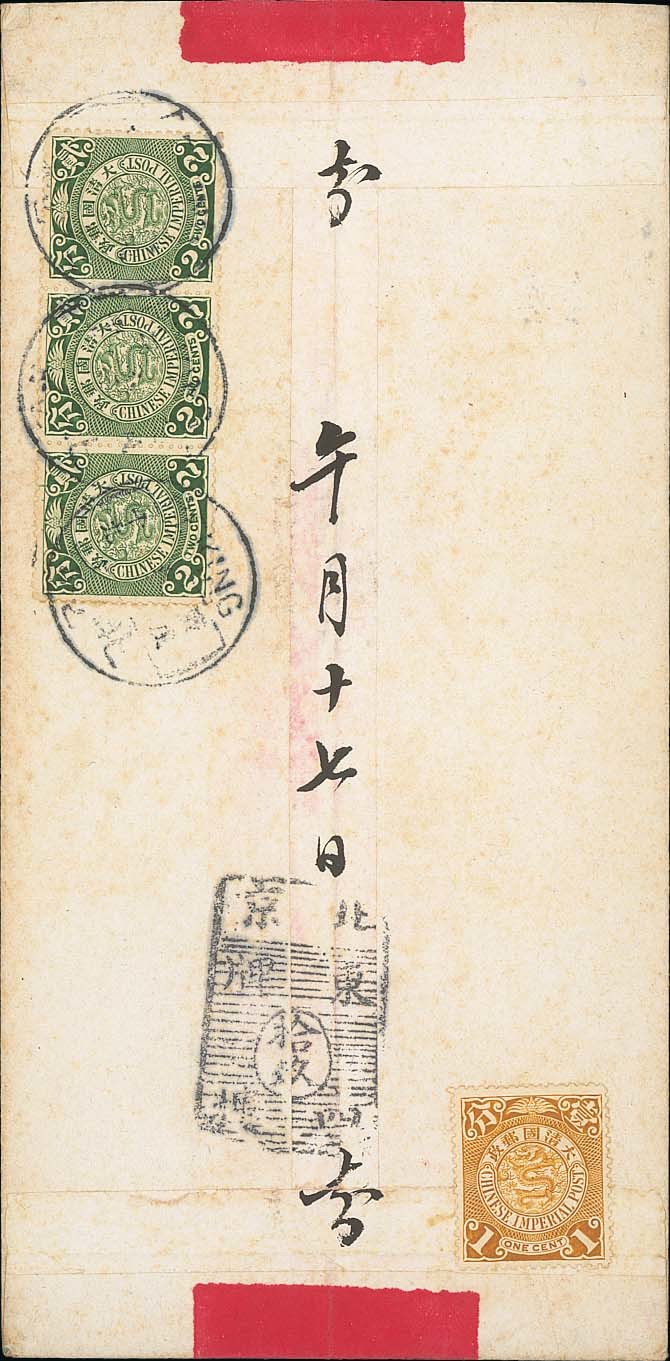 大清國郵政
CHINESE IMPERIAL POST
貳分
2
2
TWO CENTS
大清國郵政
CHINESE IMPERIAL POST
貳分
2
2
TWO CENTS
大清國郵政
CHINESE IMPERIAL POST
貳分
2
2
TWO CENTS
KING
午月十七日
北京
東牌
拾
四樓
壹分
大清國郵政
CHINESE IMPERIAL POST
1 ONE CENT 1